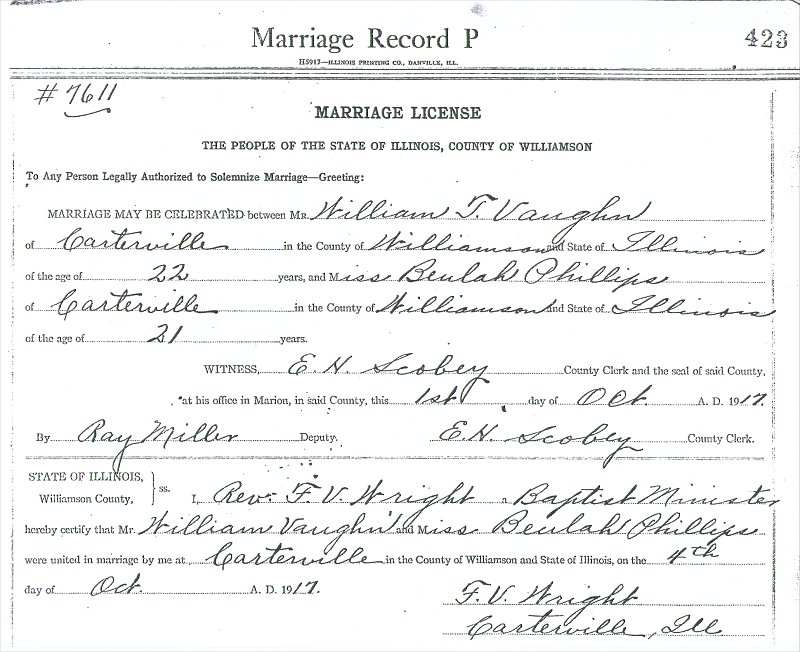 Marriage Record P 423
H5917—ILLINOIS PRINTING CO., DANVILLE, ILL.
# 7611
MARRIAGE LICENSE
THE PEOPLE OF THE STATE OF ILLINOIS, COUNTY OF WILLIAMSON
To Any Person Legally Authorized to Solemnize Marriage—Greeting:
MARRIAGE MAY BE CELEBRATED between MR. William T. Vaughn
of Carterville in the County of Williamson and State of Illinois
of the age of 22 years, and Miss Beulah Phillips
of Carterville in the County of Williamson and State of Illinois
of the age of 21 years.
WITNESS, E. H. Scobey County Clerk and the seal of said County,
at his office in Marion, in said County, this 1st day of Oct. A. D. 1917.
By Ray Miller Deputy. E. H. Scobey County Clerk.
STATE OF ILLINOIS,
Williamson County, } ss. I, Rev. F. V. Wright a Baptist Minister
hereby certify that Mr. William Vaughn and Miss Beulah Phillips
were united in marriage by me at Carterville in the County of Williamson and State of Illinois, on the 4th
day of Oct. A. D. 1917. F. V. Wright
Carterville, Ill.